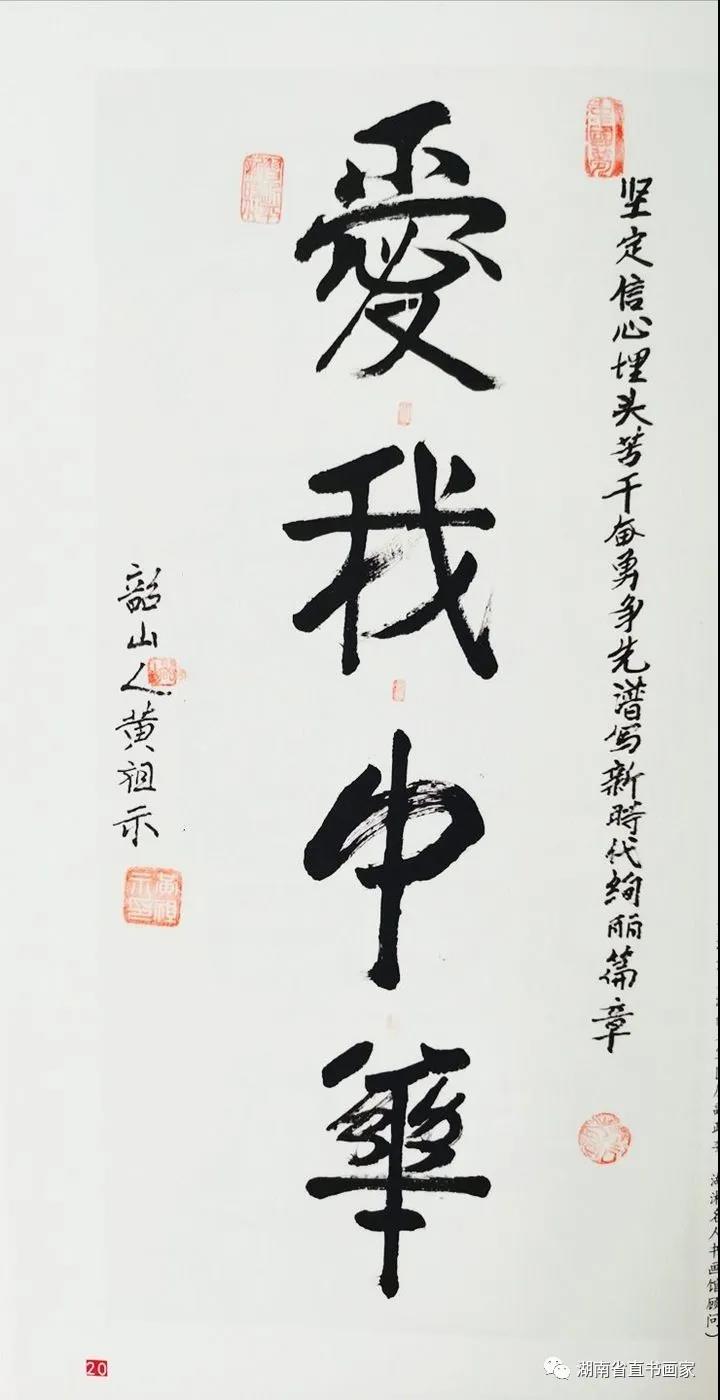 坚定信心埋头苦干奋勇争先谱写新時代绚丽篇章
愛我中華
韶山人黄祖示
湖湘名人书画馆顾问）
20
湖南省直书画家